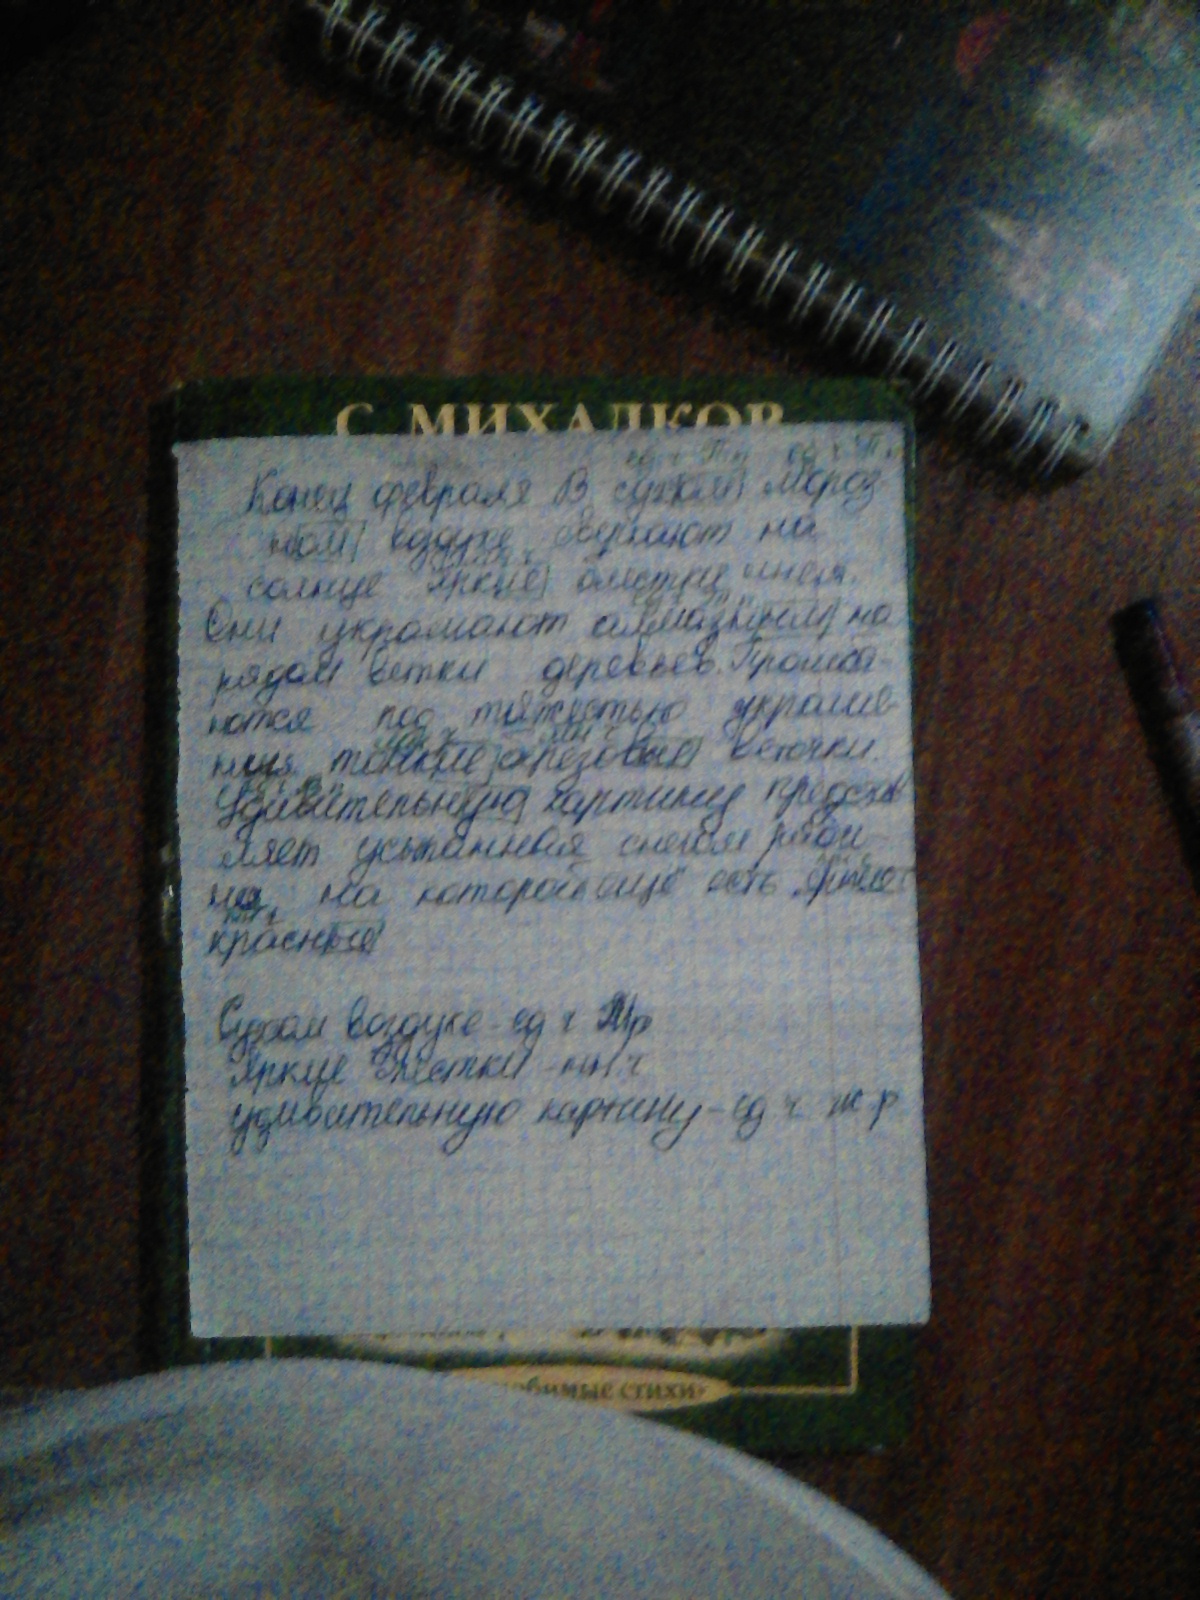 С. МИХАЛКОВ
ед ч П.п ед ч П.
Конец февраля В сухом мороз
ном воздухе сверкают на
солнце яркие блестки инея.
Они украшают алмазным на
рядом ветки деревьев. Прогиба-
ются под тяжестью украше-
ния тонкие березовые веточки.
Удивительную картину представ
ляет усыпанная снегом ряби-
на, на которой ещё есть
красные
Сухом воздухе - ед ч М р
Яркие блестки - мн. ч
удивительную картину - ед ч ж р
любимые стихи»